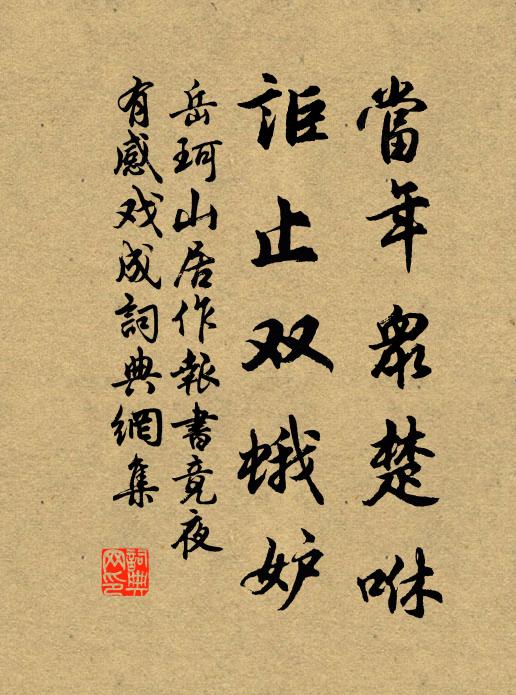 當年眾楚咻
詎止双蛾妒
岳珂山居作報書竟夜
有感戏成詞典網集
詞典网印